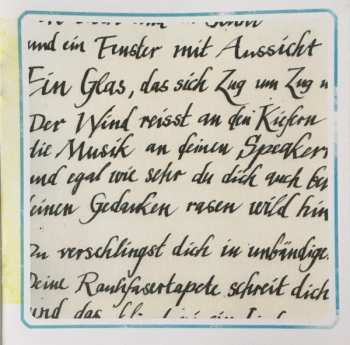 und ein Fenster mit Aussicht
Ein Glas, das sich Zug um Zug
Der Wind reisst an den Kiefern
die Musik an deinen Speakern
und egal wie sehr du dich auch
deinen Gedanken rasen wild
Du verschlingst dich in unbändige
Deine Rauhfasertapete schreit dich
und das